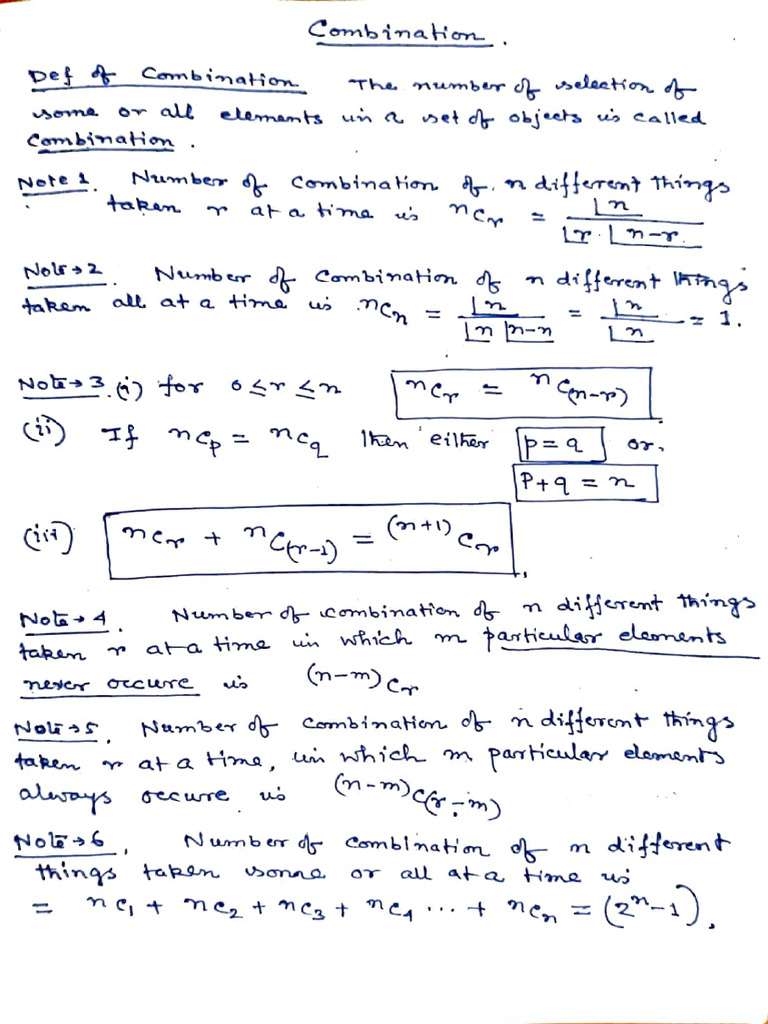 Combination.
Def of Combination The number of selection of
some or all elements in a set of objects is called
Combination.
Note 1. Number of Combination of n different things
taken r at a time is nCr = ⌊n / ⌊r . ⌊n-r
Note→2. Number of Combination of n different things
taken all at a time is nCn = ⌊n / ⌊n ⌊n-n = ⌊n / ⌊n = 1.
Note→3. (i) for 0≤r≤n nCr = nC(n-r)
(ii) If nCp = nCq then either p=q or,
p+q = n
(iii) nCr + nC(r-1) = (n+1)Cr
Note→4. Number of combination of n different things
taken r at a time in which m particular elements
never occure is (n-m)Cr
Note→5. Number of combination of n different things
taken r at a time, in which m particular elements
always occure is (n-m)C(r-m)
Note→6, Number of combination of n different
things taken some or all at a time is
= nC1 + nC2 + nC3 + nC4 ... + nCn = (2^n-1).